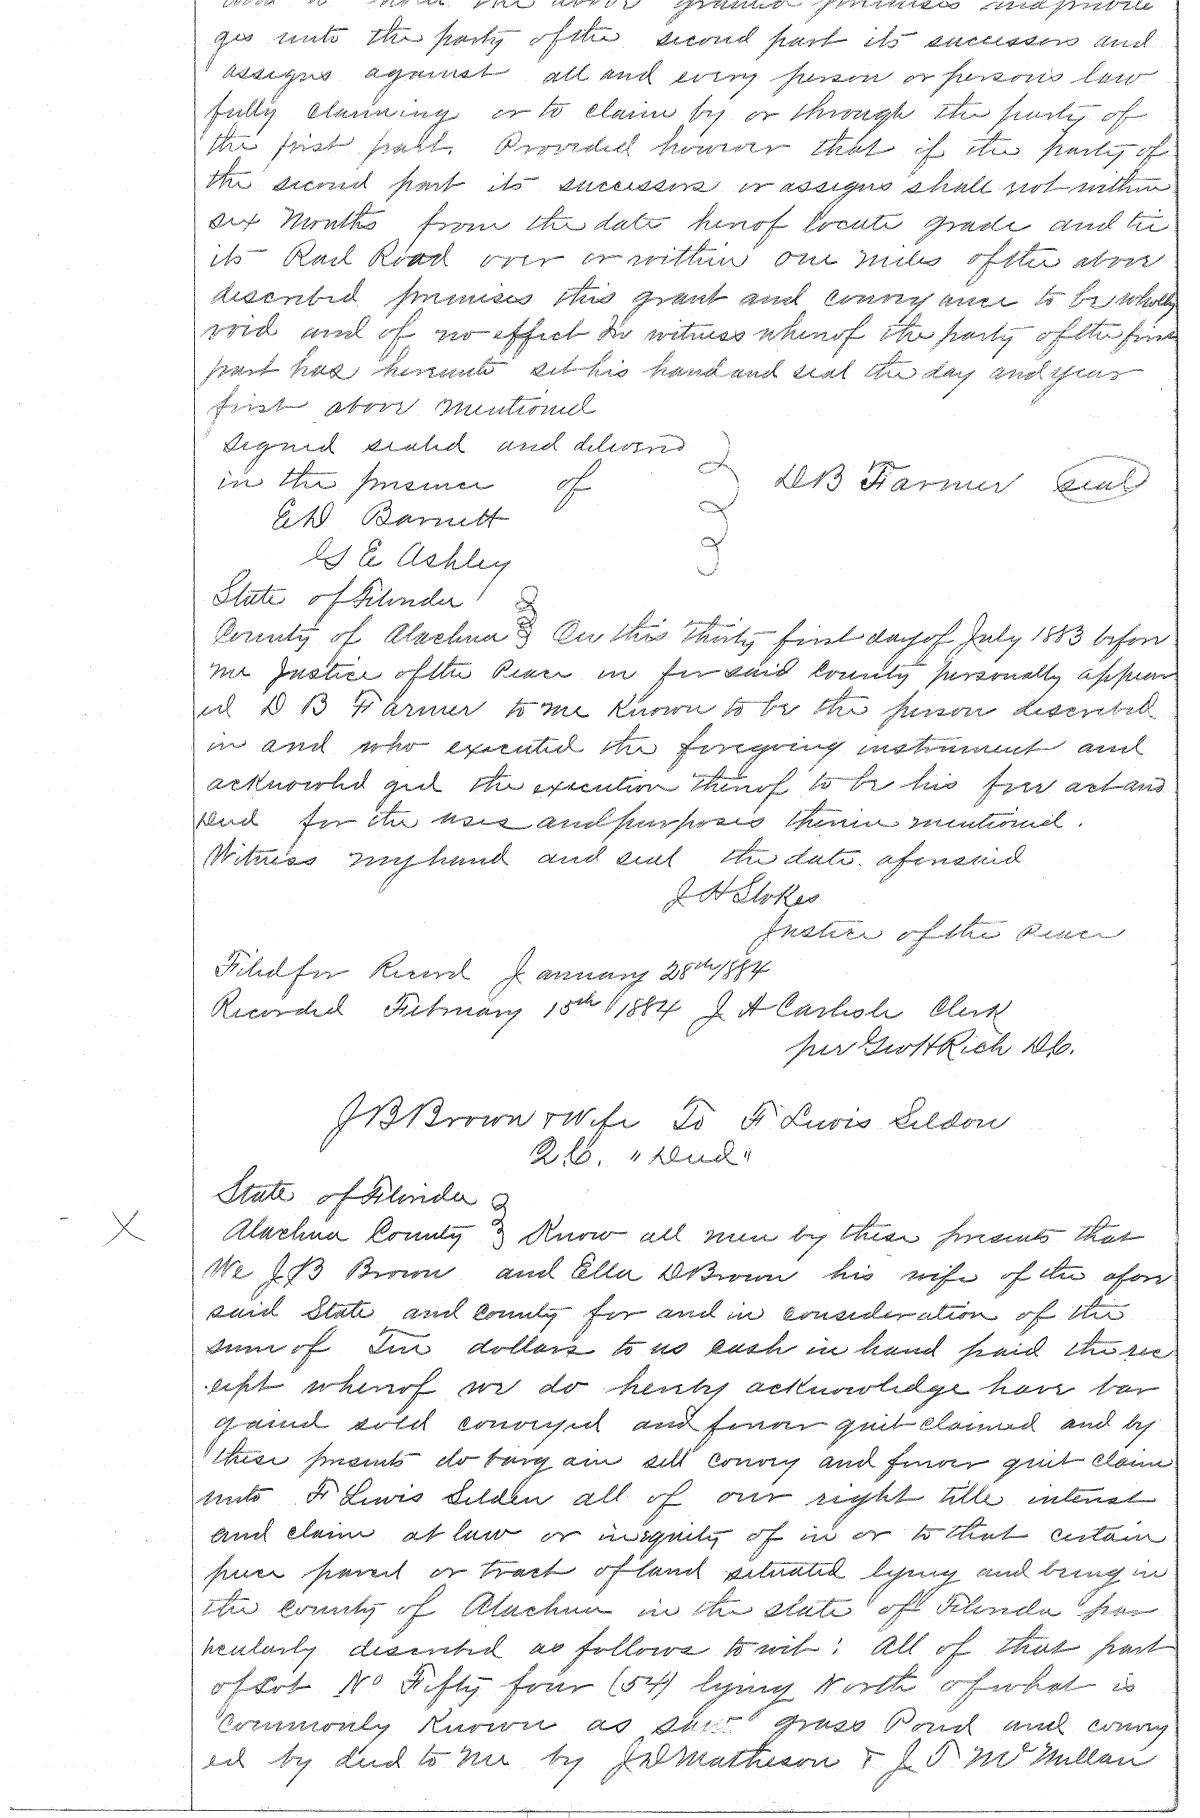 and to hold the above granted premises and privile
ges unto the party of the second part its successors and
assigns against all and every person or persons law
fully claiming or to claim by or through the party of
the first part. Provided however that if the party of
the second part its successors or assigns shall not within
six Months from the date hereof locate grade and tie
its Rail Road over or within one miles of the above
described premises this grant and conveyance to be wholly
void and of no effect In witness whereof the party of the first
part has hereunto set his hand and seal the day and year
first above mentioned
Signed sealed and delivered
in the presence of D B Farmer seal
E D Barnett
G E Ashley
State of Florida
County of Alachua On this thirty first day of July 1883 before
me Justice of the Peace in for said County personally appear
ed D B Farmer to me Known to be the person described
in and who executed the foregoing instrument and
acknowled ged the execution thereof to be his free act and
Deed for the uses and purposes therein mentioned.
Witness my hand and seal the date aforesaid
J H Stokes
Justice of the Peace
Filed for Record January 28th 1884
Recorded February 15th 1884 J A Carlisle Clerk
per Geo H Rich D.C.
J B Brown & Wife To F Lewis Seldon
Q.C. "Deed"
State of Florida
X Alachua County Know all men by these presents that
We J B Brown and Ella D Brown his wife of the afore
said State and County for and in consideration of the
sum of dollars to us cash in hand paid the rec
eipt whereof we do hereby acknowledge have bar
gained sold conveyed and forever quit claimed and by
these presents do bargain sell convey and forever quit claim
unto F Lewis Selden all of our right title interest
and claim at law or in equity of in or to that certain
piece parcel or tract of land situated lying and being in
the county of Alachua in the state of Florida par
ticularly described as follows to wit: All of that part
of Lot No Fifty four (54) lying North of what is
commonly Known as saw grass Pond and convey
ed by deed to me by J D Matheson & J T McMillan